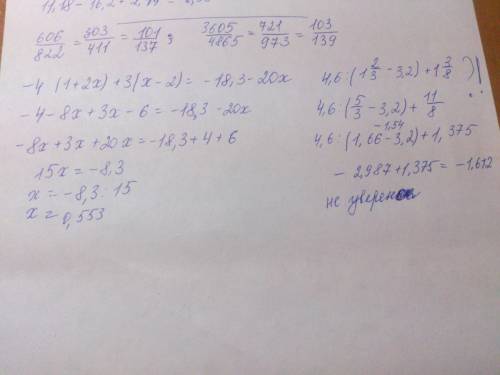 606/822 = 303/411 = 101/137 ; 3605/4865 = 721/973 = 103/139
-4 (1+2x) + 3(x-2) = -18,3 - 20x
-4-8x+3x-6 = -18,3-20x
-8x+3x+20x = -18,3+4+6
15x = -8,3
x = -8,3 : 15
x = 0,553
4,6 : (1 2/3 - 3,2) + 1 3/8
4,6 : (5/3 - 3,2) + 11/8
-1,54
4,6 : (1,66 - 3,2) + 1,375
- 2,987 + 1,375 = -1,612
не уверен